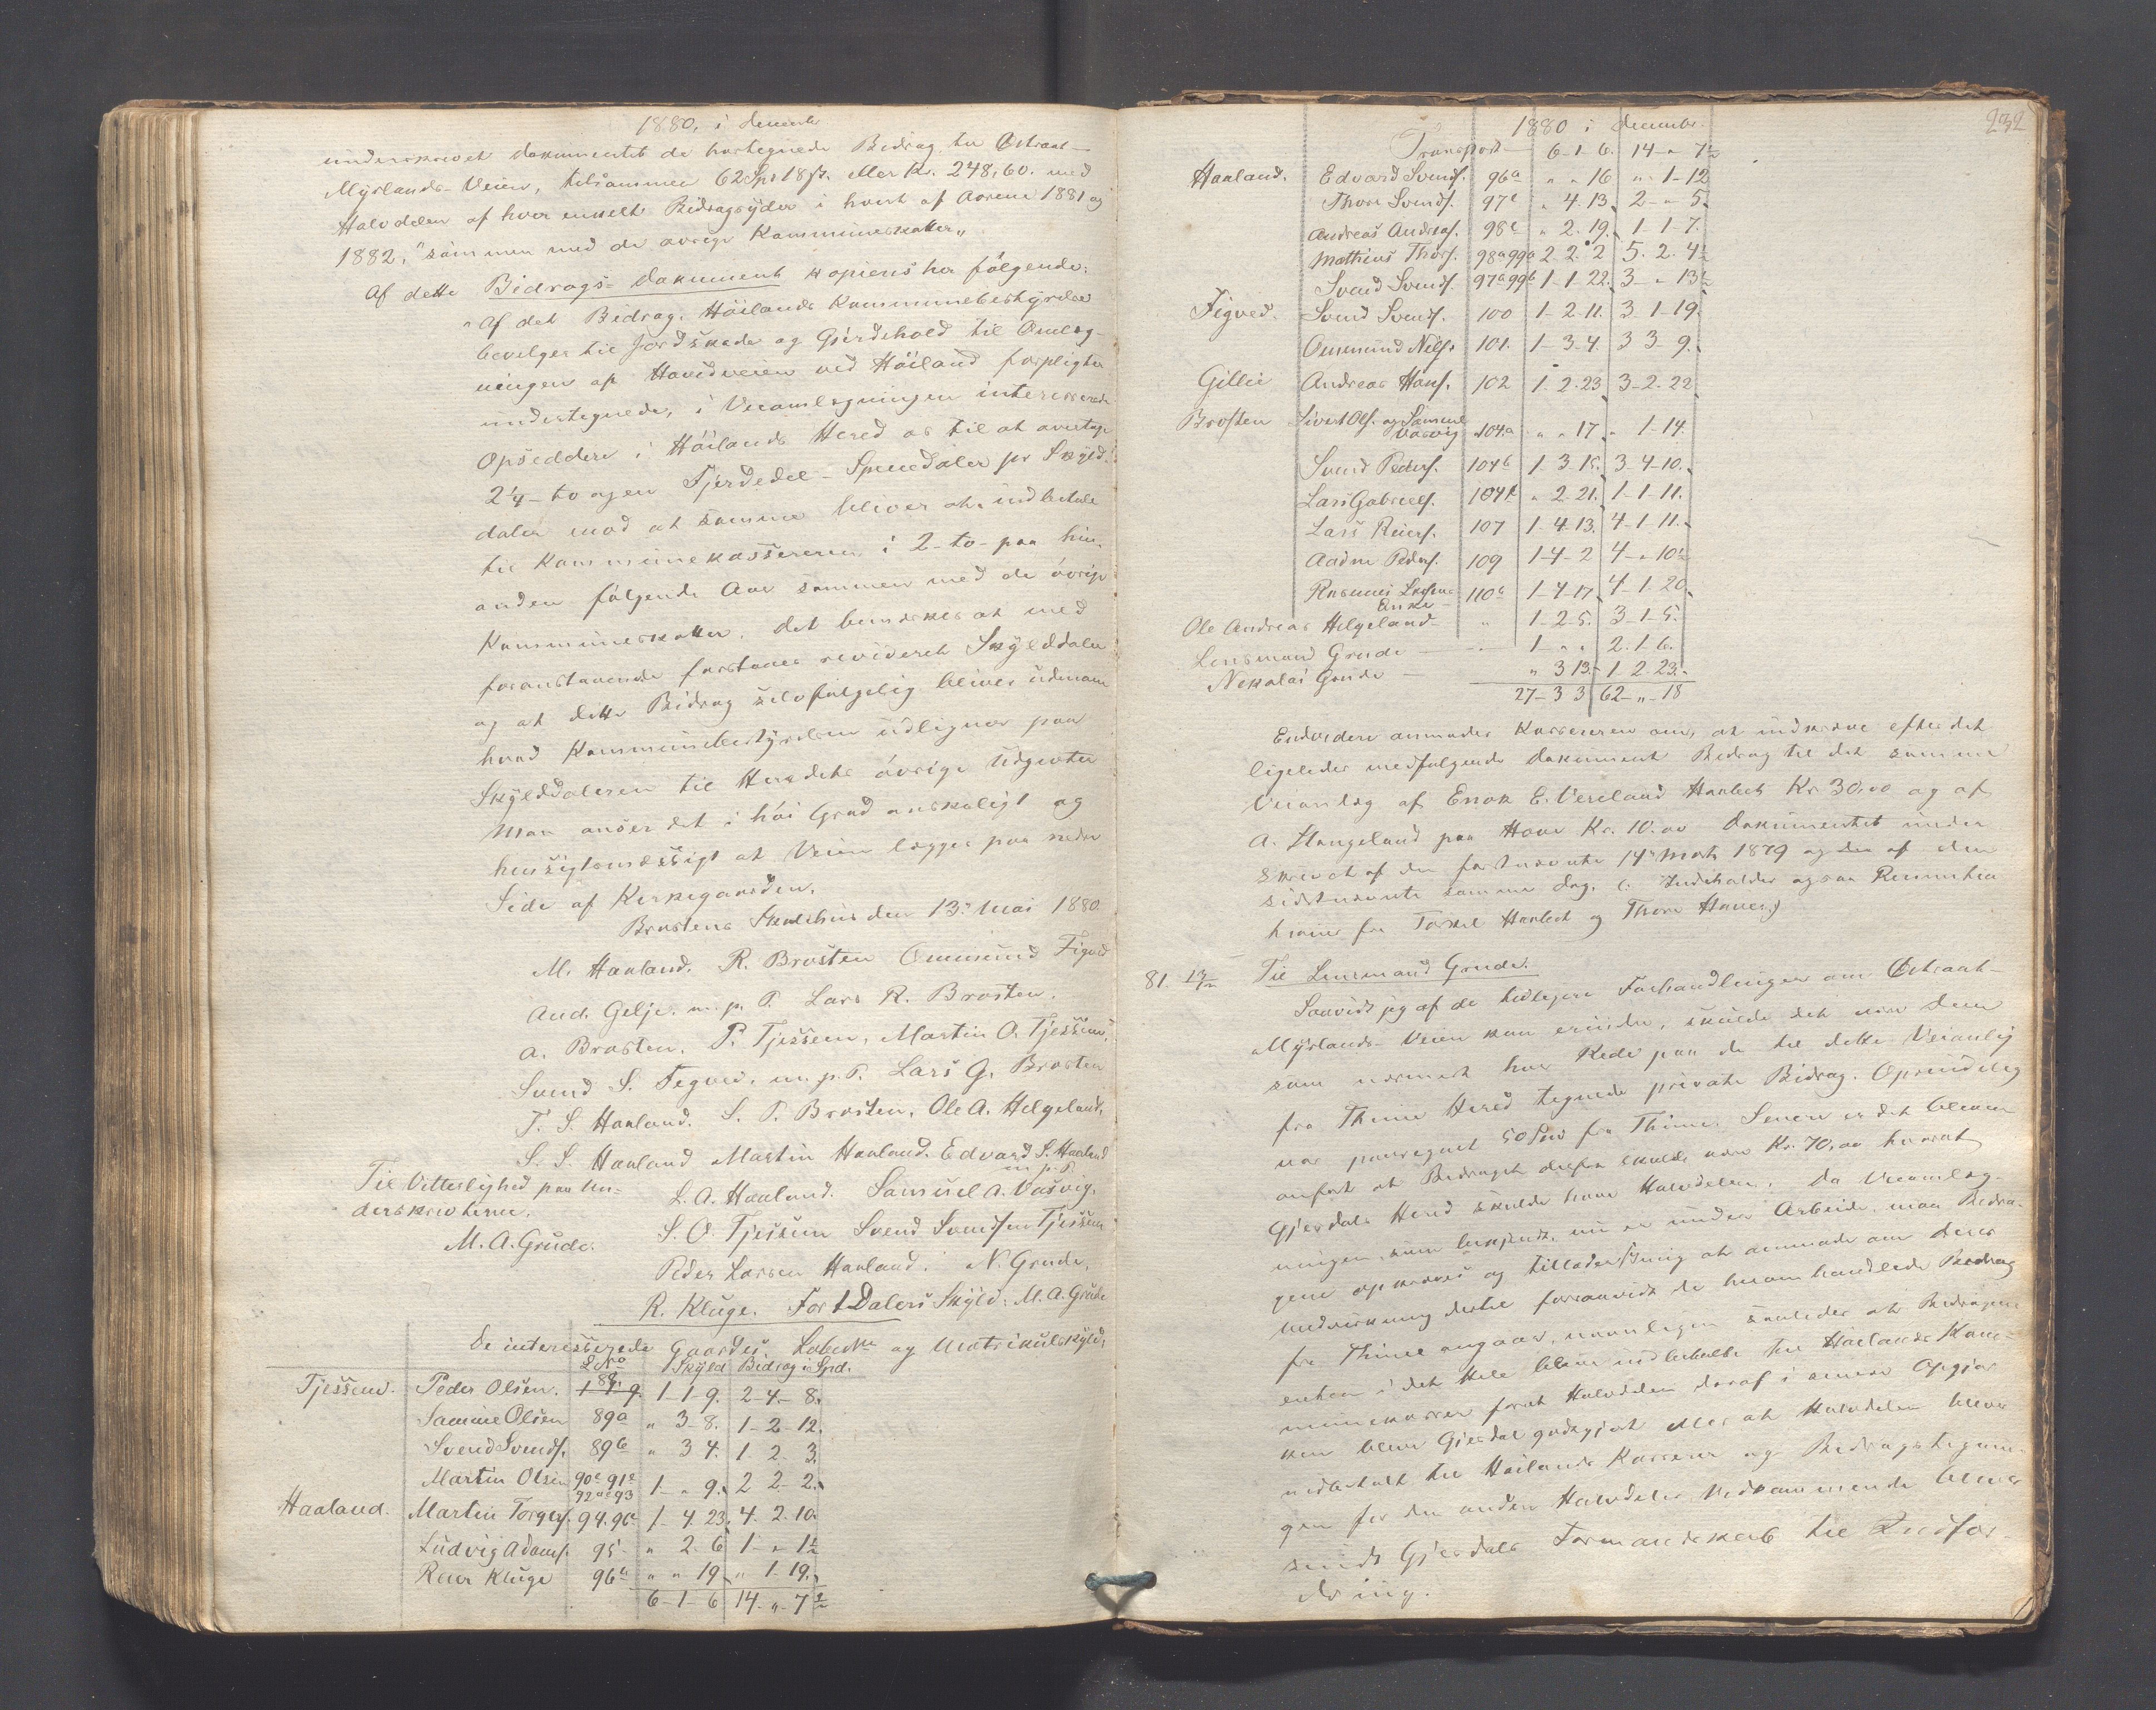 1880, i december
underskrevet dokumentet de hostegnede Bidrag til Østraat-
Myrlands-Veien, tilsammen 62 Spd 18 s. eller Kr. 248,60. med
Halvdelen af hver enkelt Bidragsyder i hvert af Aarene 1881 og
1882, "sammen med de øvrige Kommuneskatter"
Af dette Bidrags-Dokument kopieres her følgende:
"Af det Bidrag, Höilands Kommunebestyrelse
bevilger til Jordskade og Gjerdehold til Omlæg-
ningen af Hovedveien ved Höiland forpligter
undertegnede, i Veiomlægningen interesserede
Opsiddere i Höilands Hered os til at overtage
2¼ - to og en Fjerdedel - Speciedaler pr Skyld-
daler mod at samme bliver at indbetale
til Kommunekassereren i 2 - to - paa hin-
anden følgende Aar sammen med de övrige
Kommuneskatter. Det bemærkes at med
foranstaaende forstaaes revideret Skylddaler
og at dette Bidrag selvfølgelig bliver udenom
hvad Kommunebestyrelsen udligner paa
Skylddaleren til Heredets övrige Udgivter
Man anser det i höi Grad önskeligt og
hensigtsmæssigt at Veien lægges paa nedre
Side af Kirkegaarden.
Brostens Skolehus den 13de Mai 1880
M. Haaland. R. Brosten Ommund Figved
And. Gilje. m. p. P. Lars R. Brosten.
A. Brosten. P. Tjessem, Martin O. Tjessem,
Svend S. Fegved, m. p. P. Lars G. Brosten
T. S. Haaland. S. P. Brosten, Ole A. Helgeland,
S. S. Haaland Martin Haaland. Edvard S. Haaland
m. p. P.
Til Vitterlighed paa Un-
derskrivterne.
M. A. Grude.
L. A. Haaland. Samuel A. Vasvig.
S. O. Tjessem Svend Svendsen Tjessem
Peder Larsen Haaland. N. Grude,
R. Kluge. For 1 Dalers Skyld: M. A. Grude
De interesserede Gaardes, Løbe Nr og Matrikulskyld:
L No Skyld Bidrag i Spd.
Tjessem. Peder Olsen. 88. 1 1 9. 2-4-8.
Samme Olsen 89a " 3-8. 1-2-12.
Svend Svends. 89b " 3 4. 1. 2. 3.
Martin Olsen 90a 91a 92a 93 1- " 9. 2 2-2.
Haaland. Martin Torgers. 94. 96 1-4 23. 4. 2. 10.
Ludvig Adams. 95. " 2. 6 1- " 1½
Reier Kluge 96a " " 19 " 1. 19.
6-1-6 14. " 7½
232
1880 i december
Transport 6-1-6. 14-"-7½
Haaland. Edvard Svends. 96a " " 16 " 1-12
Thore Svends. 97c " 4. 13. 2-"-5.
Andreas Andreas. 98c " 2. 19. 1-1-7.
Mathius Thors. 98a 99a 2. 2. 2 5. 2. 4½
Svend Svends. 97a 99b 1-1 22. 3-"-13½
Figved. Svend Svends. 100 1-2-11. 3-1-19.
Ommund Nils. 101. 1-3-4. 3 3 9.
Gillie Andreas Hans. 102 1. 2. 23 3-2. 22
Brosten Sivert Ols. og Samuel
Vasvig 104a " " 17 " 1-14.
Svend Peders. 104b 1-3-15. 3-4-10.
Lars Gabriels. 104c " 2-21. 1-1-11.
Lars Reiers. 107 1-4. 13. 4-1-11.
Aadne Peders. 109 1-4-2 4-"-10½
Rasmus Larsens
Enke 110a 1-4-17. 4-1-20.
Ole Andreas Helgeland " 1-2-5. 3-1-5.
Lensmand Grude 1- " " 2. 1 6.
Nikolai Grude " 3 13. 1 2. 23.
27-3 3 62-"-18
Endvidere anmodes Kassereren om, at indkræve efter det
ligeledes medfølgende dokument Bidrag til det samme
Veianlæg af Enok E. Vereland Hanbek Kr. 30,00 og af
A. Stangeland paa Hove Kr. 10.00 dokumentet under
skrevet af den førstnævnte 14de Marts 1879 og den af den
sidstnævnte samme dag. (: Indeholder ogsaa Reminten
hraner fra Torkel Hanbek og Thore Hauen:)
81. 13/1 Til Lensmand Grude.
Saavidt jeg af de tidligere Forhandlinger om Østraat-
Myrlands-Veien kan erindre, skulde det være dem
som nærmest har Rede paa de til dette Veianlæg
fra Thime Hered tegnede private Bidrag. Oprindelig
var paaregnet 50 Spd fra Thime. Senere er det bleven
anført at Bidraget derfra skulde være Kr. 70,00 hvoraf
Gjerdals Hered skulde have Halvdelen. Da Veiomlæg-
ningen, som bekjendt, nu er under Arbeide, maa Bidra-
gene opkræves og tillader jeg mig at anmode om Deres
Medvirkning dertil forsaavidt de heromhandlede Bidrag
fra Thime angaar, nemligen saaledes at Bidragene
enten i det Hele blive indbetalte til Höilands Kom-
munekasse forat Halvdelen deraf i senere Opgjør
kan blive Gjesdal godtgjort eller at Halvdelen bliver
indbetalt til Höilands Kasserer og Bidragstegnin-
gen for den anden Halvdels Vedkommende bliver
sendt Gjesdals Formandskab til Indfor-
dring.